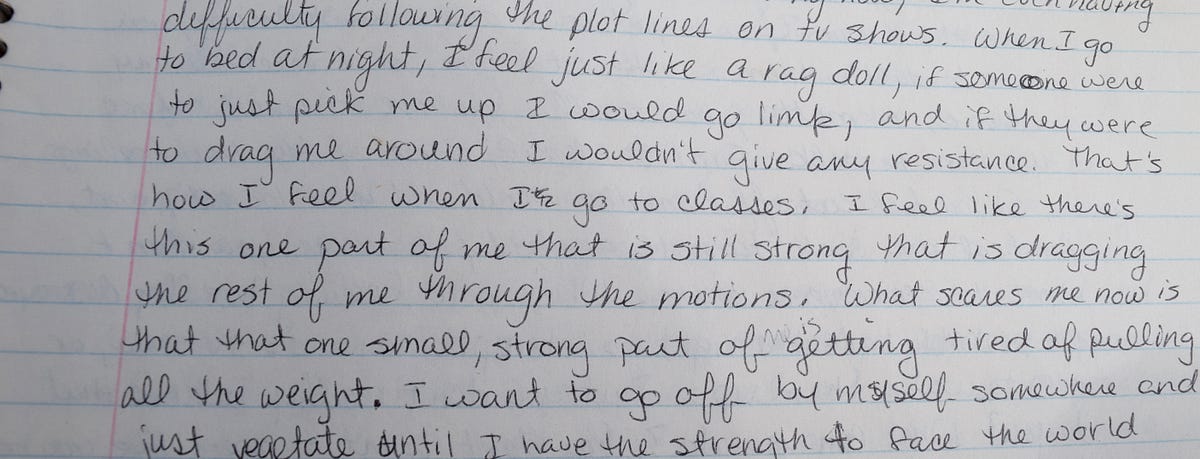 difficulty following the plot lines on tv shows. When I go
to bed at night, I feel just like a rag doll, if someone were
to just pick me up I would go limp, and if they were
to drag me around I wouldn't give any resistance. That's
how I feel when I go to classes. I feel like there's
this one part of me that is still strong that is dragging
the rest of me through the motions. What scares me now is
that that one small, strong part of me is getting tired of pulling
all the weight. I want to go off by myself somewhere and
just vegetate until I have the strength to face the world